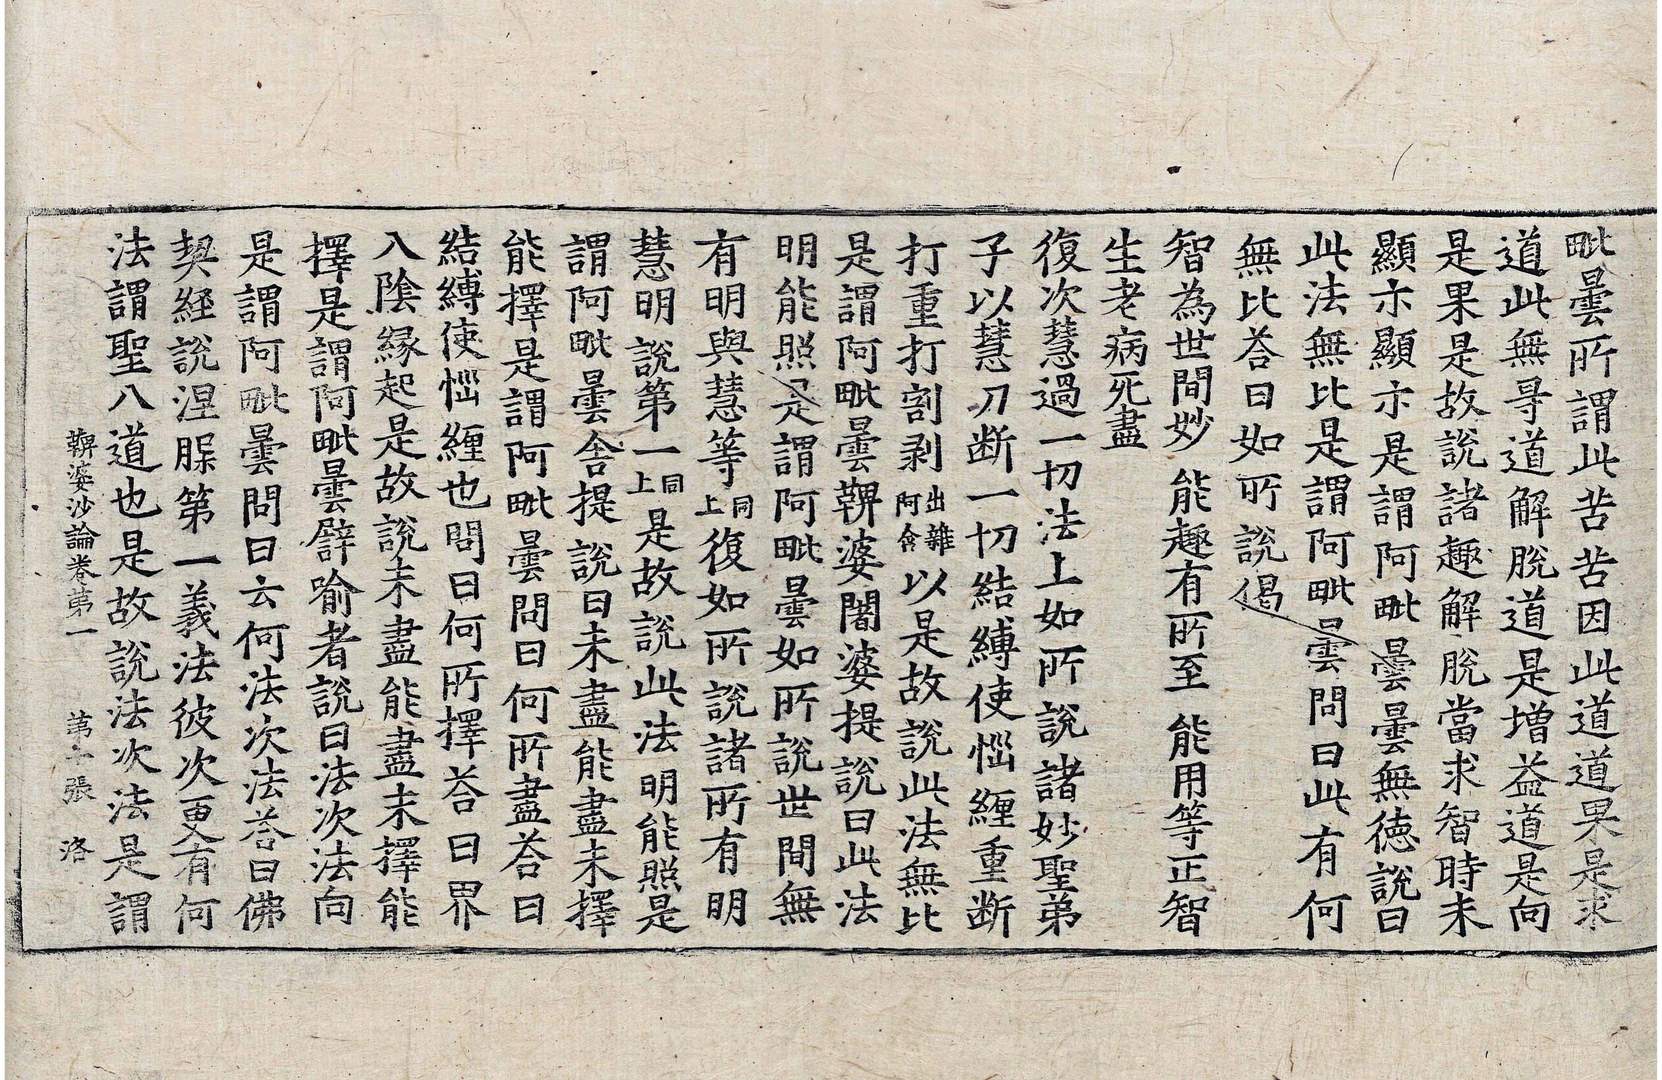 毗曇所謂此苦苦因此道道果是求
道此無㝵道解脫道是增益道是向
是果是故說諸趣解脫當求智時未
顯示顯示是謂阿毗曇曇無德說曰
此法無比是謂阿毗曇問曰此有何
無比荅曰如所說偈
智為世間妙 能趣有所至 能用等正智
生老病死盡
復次慧過一切法上如所說諸妙聖弟
子以慧刀斷一切結縛使惱纏重斷
打重打割剥出雜阿含以是故說此法無比
是謂阿毗曇鞞婆闍婆提說曰此法
明能照是謂阿毗曇如所說世間無
有明與慧等同上復如所說諸所有明
慧明說第一同上是故說此法明能照是
謂阿毗曇舍提說曰未盡能盡未擇
能擇是謂阿毗曇問曰何所盡荅曰
結縛使惱纏也問曰何所擇荅曰界
入陰緣起是故說未盡能盡未擇能
擇是謂阿毗曇譬喻者說曰法次法向
是謂阿毗曇問曰云何法次法荅曰佛
契經說涅槃第一義法彼次更有何
法謂聖八道也是故說法次法是謂
鞞婆沙論卷第一 第十張 洛